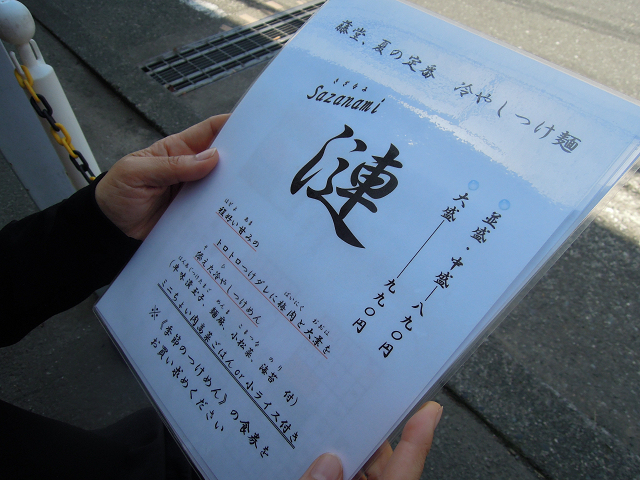 藤堂、夏の定番 冷やしつけ麺
さざなみ
Sazanami
漣
並盛・中盛―八九〇円
大盛――九九〇円
程好い甘みの
トロトロつけダレに梅肉と大葉を
添えた冷やしつけめん
(半味漬玉子、麺麻、小松菜、海苔 付)
ミニちょい肉生姜ごはん or 小ライス付き
※《季節のつけめん》の食券を
お買い求めください